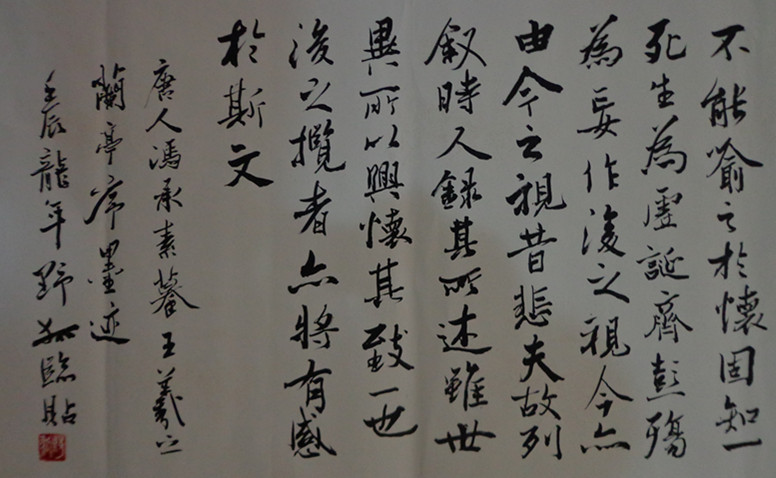 不能喻之於懷固知一
死生為虛誕齊彭殤
為妄作後之視今亦
由今之視昔悲夫故列
叙時人錄其所述雖世
異所以興懷其致一也
後之攬者亦將有感
於斯文
唐人馮承素摹王羲之
蘭亭序墨迹
壬辰龍年野臨貼